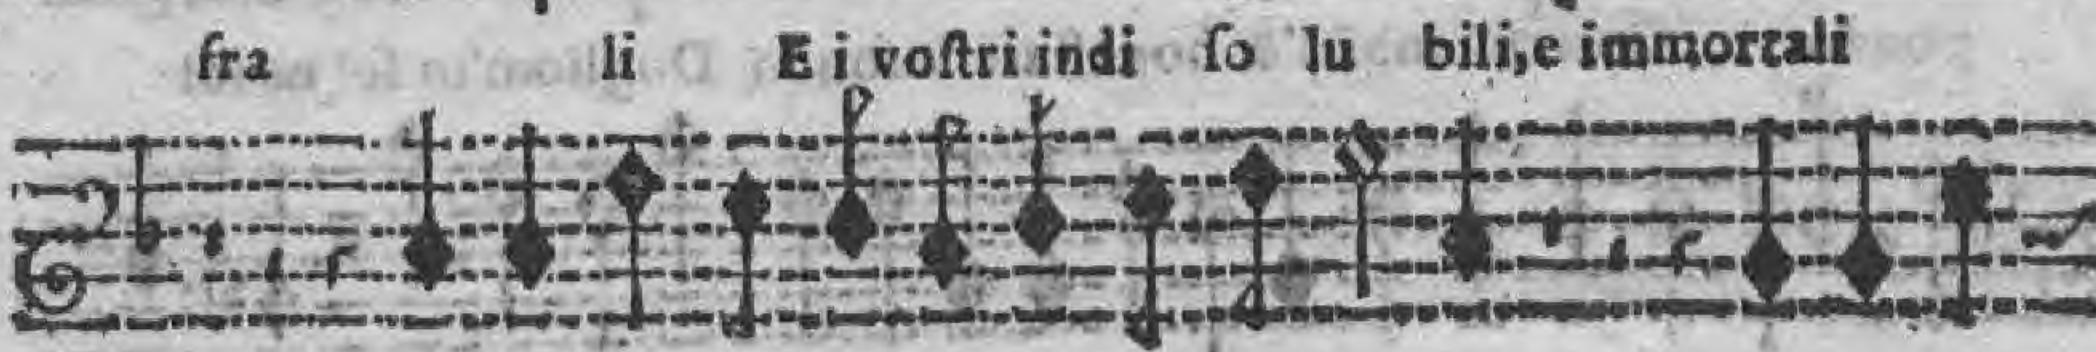 fra li E i voſtri indi ſo lu bili, e immortali